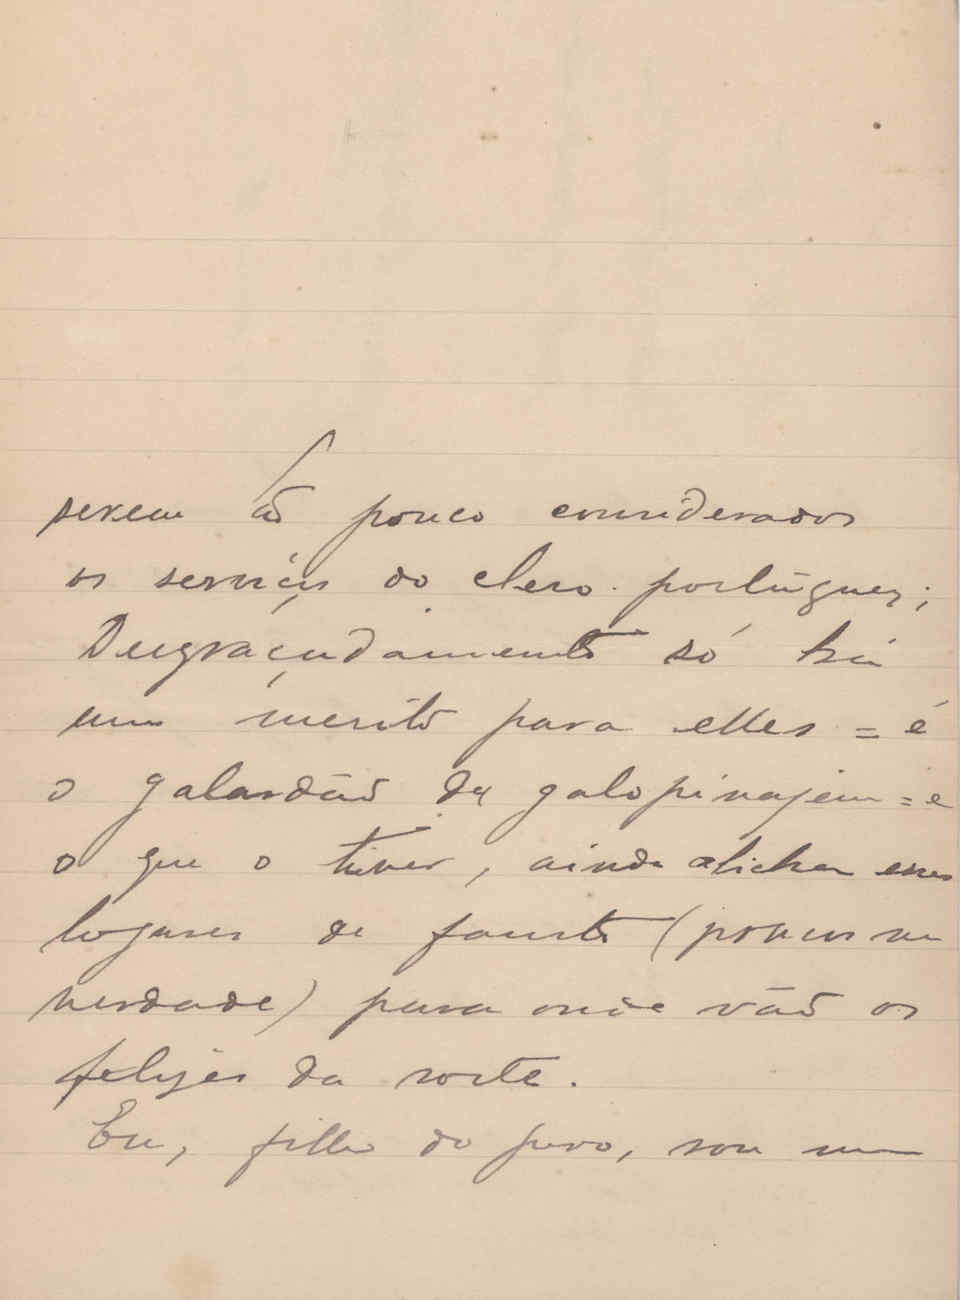 serem tão pouco considerados
os serviços do clero portuguez;
Desgraçadamente só ha
um merito para elles = é
o galardão da galopinajem = e
o que o tiver, ainda alicha esses
logares de fausto (poucos na
verdade) para onde vão os
felizes da sorte.
Eu, filho do povo, sou um